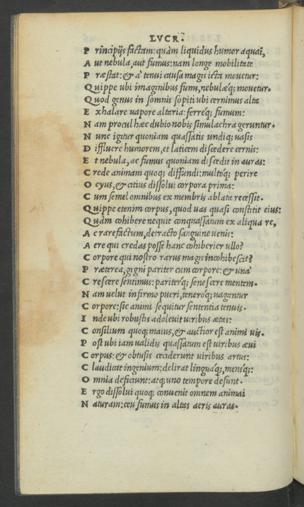 LVCR.
P rincipijs factam: quàm liquidus humor aquaï,
A ut nebula, aut fumus: nam longe mobilitate
P ræstat: & a' tenui causa magis icta mouetur:
Q uippe ubi imaginibus fumi, nebulæq; mouetur.
Q uod genus in somnis sopiti ubi cernimus alta
E xhalare uapore altaria: ferreq; fumum:
N am procul hæc dubio nobis simulachra geruntur.
N unc igitur quoniam quassatis undiq; uasis
D iffluere humorem, et laticem discedere cernis:
E t nebula, ac fumus quoniam discedit in auras:
C rede animam quoq; diffundi: multoq; perire
O cyus, & citius dissolui corpora prima:
C um semel omnibus ex membris ablata recessit.
Q uippe etenim corpus, quod uas quasi constitit eius:
Q uàm cohibere nequit conquassatum ex aliqua re,
A c rarefactum, detracto sanguine uenis:
A ere qui credas posse hanc cohiberier ullo?
C orpore qui nostro rarus magis incohibescit?
P ræterea, gigni pariter cum corpore: & una'
C rescere sentimus: pariterq; senescere mentem.
N am uelut infirmo pueri, teneroq; uagantur
C orpore: sic animi sequitur sententia tenuis.
I nde ubi robustis adoleuit uiribus ætas:
C onsilium quoq; maius, & auctior est animi uis.
P ost ubi iam ualidis quassatum est uiribus æui
C orpus: & obtusis ceciderunt uiribus artus:
C laudicat ingenium: delirat linguaq;, mensq;:
O mnia deficiunt: atq; uno tempore desunt.
E rgo dissolui quoq; conuenit omnem animai
N aturam: ceu fumus in altas aeris auras.